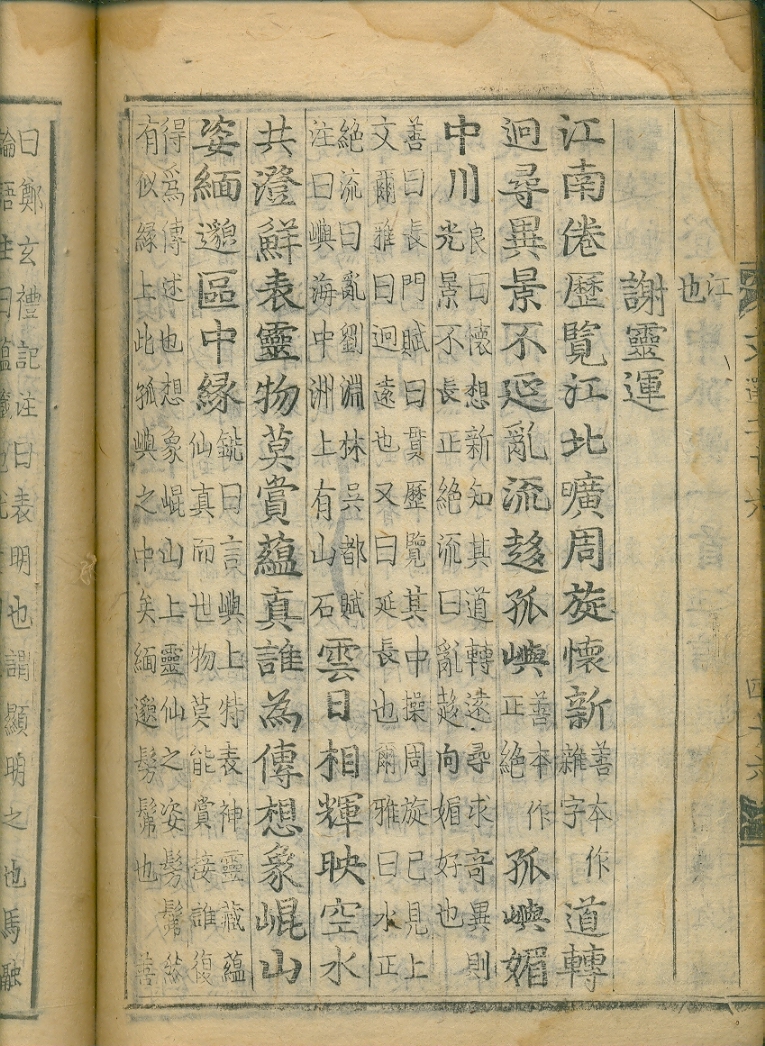 文選二十六 四十六
江
也
謝靈運
江南倦歷覽江北曠周旋懷新善本作雜字道轉
迥尋異景不延亂流趍孤嶼善本作正絶孤嶼媚
中川良曰懷想新知其道轉遠尋求竒異則光景不長正絶流曰亂趍向媚好也
善曰長門賦曰貫歷覽其中操周旋已見上
文爾雅曰迥遠也又曰延長也爾雅曰水正
絶流曰亂劉淵林呉都賦注曰嶼海中洲上有山石雲日相輝映空水
共澄鮮表靈物莫賞蘊真誰為傳想象崐山
姿緬邈區中縁銑曰言嶼上特表神靈藏蘊仙真而世物莫能賞接誰復
得爲傳述也想象崐山上靈仙之姿髣髴然
有似縁上此孤嶼之中矣緬邈髣髴也 善
曰鄭玄禮記注曰表明也謂顯明之也馬融
論語注曰蘊藏也